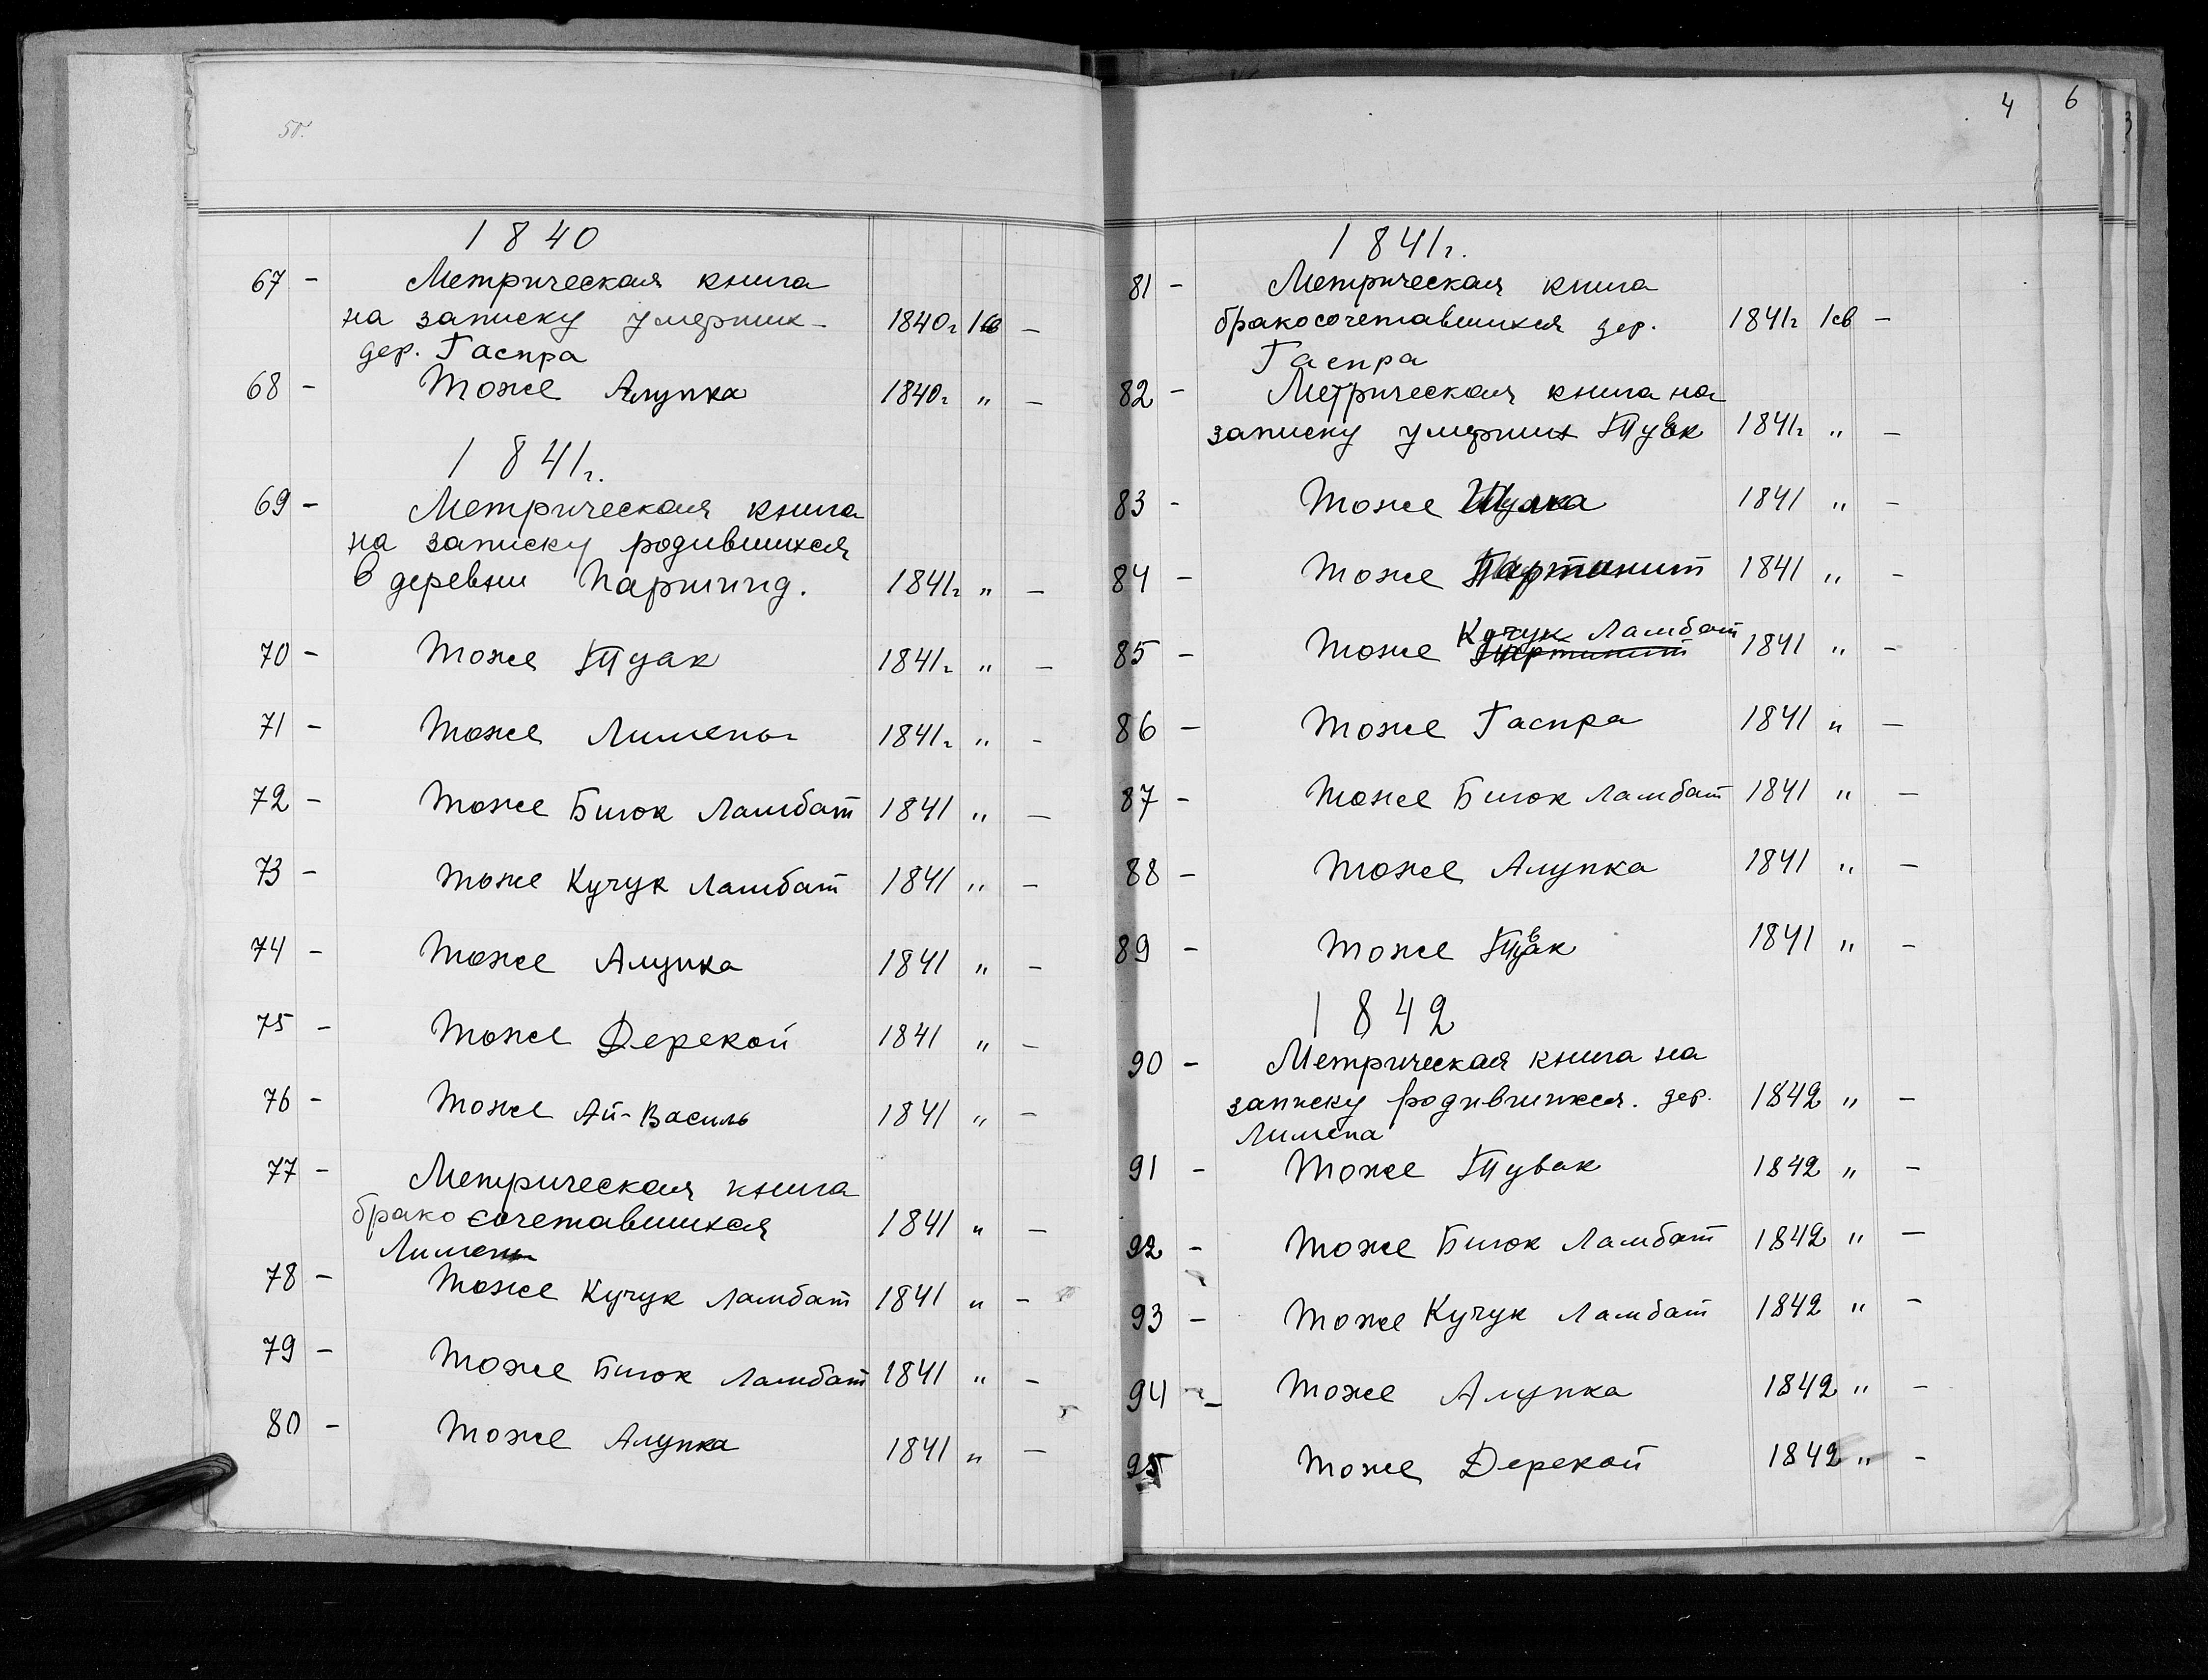 5об.
1840
67 - Метрическая книга
на записку умерших -
дер. Гаспра
1840г 1св -
68 - Тоже Алупка 1840г " -
1841г.
69 - Метрическая книга
на записку родившихся
в деревни 1841г " -
70 - Тоже Туак 1841г " -
71 - Тоже Лимены 1841г " -
72 - Тоже Биюк Ламбат 1841 " -
73 - Тоже Кучук Ламбат 1841 " -
74 - Тоже Алупка 1841 " -
75 - Тоже Дерекой 1841 " -
76 - Тоже Ай-Василь 1841 " -
77 - Метрическая книга
бракосочетавшихся 1841 " -
Лимены
78 - Тоже Кучук Ламбат 1841 " -
79 - Тоже Биюк Ламбат 1841 " -
80 - Тоже Алупка 1841 " -
4 6
1841г.
81 - Метрическая книга
бракосочетавшихся дер. 1841г 1св -
Гаспра
82 - Метрическая книга на
записку умерших Тувак 1841г " -
83 - Тоже 1841 " -
84 - Тоже Партинит 1841 " -
85 - Тоже Кучук Ламбат 1841 " -
86 - Тоже Гаспра 1841 " -
87 - Тоже Биюк Ламбат 1841 " -
88 - Тоже Алупка 1841 " -
89 - Тоже Тувак 1841 " -
1842
90 - Метрическая книга на
записку родившихся. дер. 1842 " -
Лимена
91 - Тоже Тувак 1842 " -
92 - Тоже Биюк Ламбат 1842 " -
93 - Тоже Кучук Ламбат 1842 " -
94 - Тоже Алупка 1842 " -
95 Тоже Дерекой 1842 " -